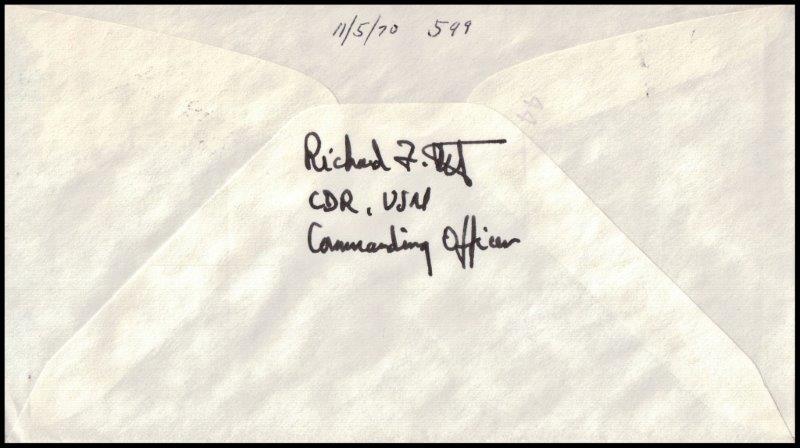 11/5/70 599
Richard F.
CDR, USN
Commanding Officer
44